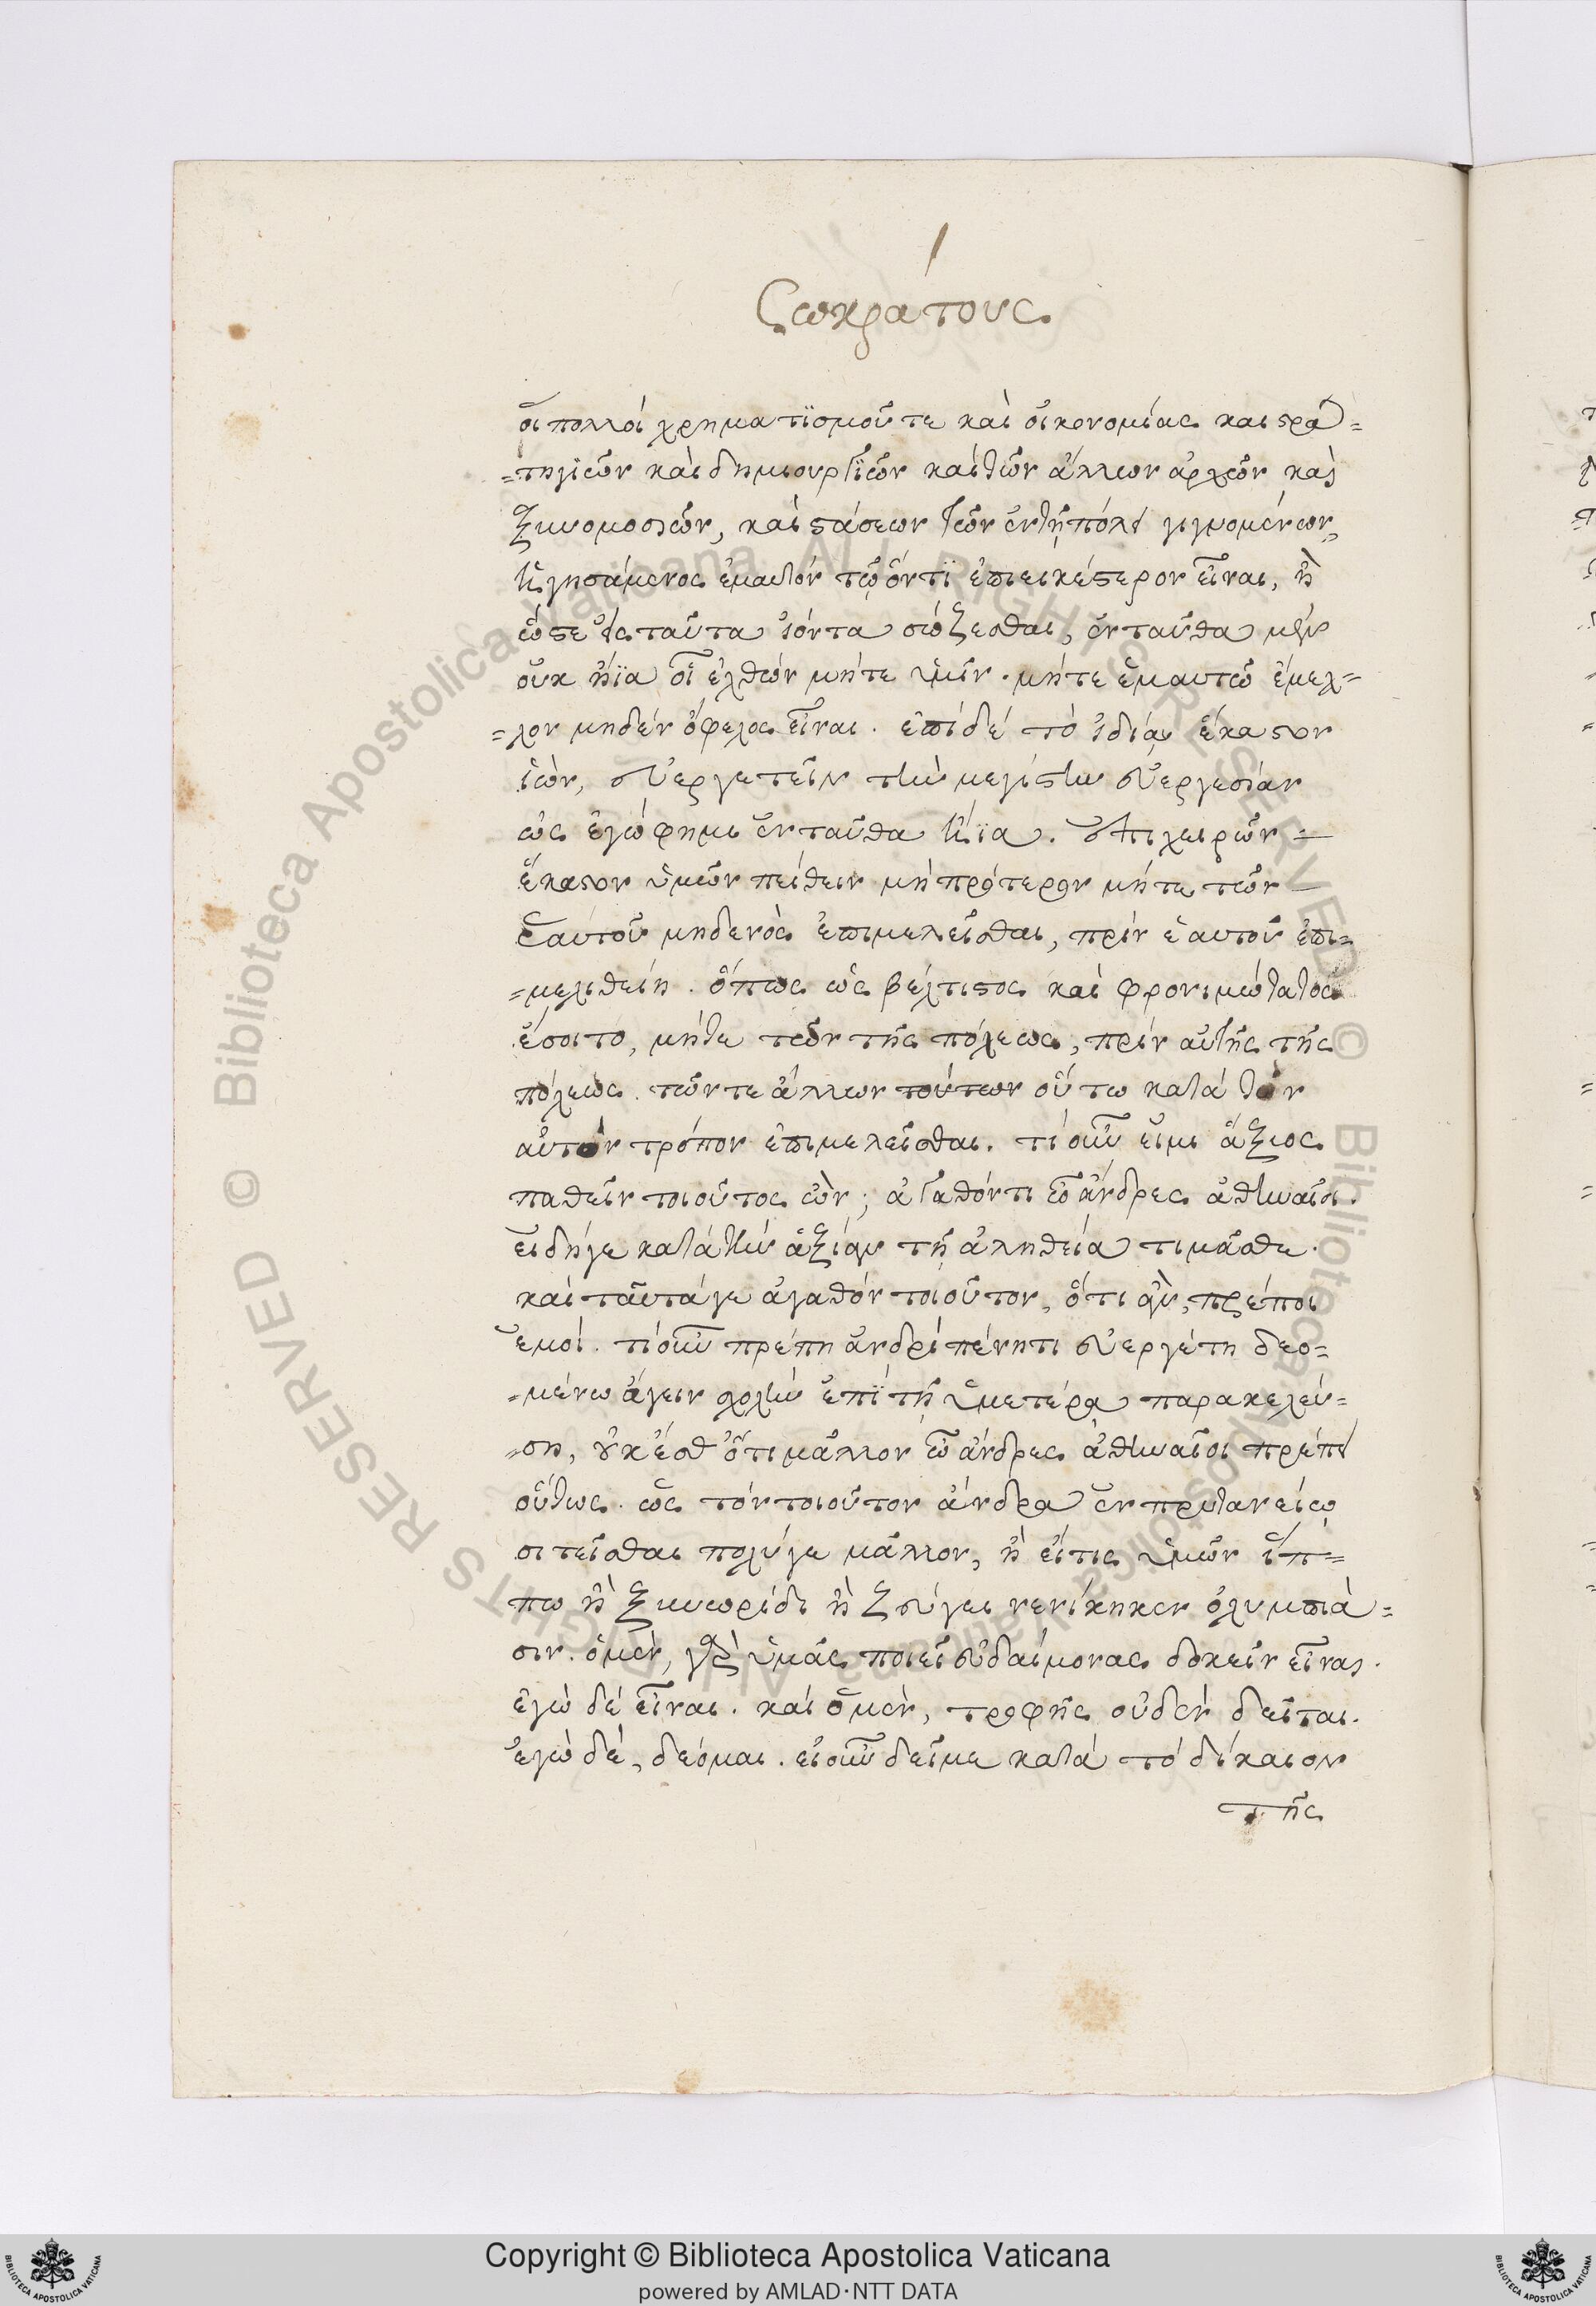 Σωκράτους
οἱ πολλοί χρηματϊσμοῦ τε καὶ οἰκονομίας και στρα=
=τηγϊῶν καὶ δημιουργϊῶν καὶ τῶν ἄλλων ἀρχῶν καὶ
ξυνομοσιῶν, καὶ στάσεων τῶν ἐν τῇ πόλει γιγνομένων,
ἡγησάμενος ἐμαυτόν τῷ ὄντϊ ἐπιεικέστερον εἶναι, ἢ
ὥστε εἰς ταῦτα ἰόντα σώζεσθαι, ἐνταῦθα μὲν
οὐκ ἤϊα οἷ ἐλθών μήτε ὑμῖν. μήτε ἐμαυτῶ ἔμελ=
=λον μηδέν ὄφελος εἶναι. ἐπί δέ τὸ ἰδίαν ἕκαστον
ἰών, εὐεργετεῖν τὴν μεγίστην εὐεργεσίαν
ὡς ἐγώ φημι ἐνταῦθα ἤϊα. ἐπιχειρῶν
ἕκαστον ὑμῶν πείθειν μή πρότερον μήτε τῶν
ἑαυτοῦ μηδενὸς ἐπιμελεῖσθαι, πρίν ἑαυτοῦ ἐπι=
=μεληθείη. ὅπως ὡς βέλτιστος καὶ φρονιμώτατος
ἔσοιτο, μήτε τῶν τῆς πόλεως, πρίν αὐτῆς τῆς
πόλεως. τῶν τε ἄλλων τούτων οὕτω κατά τὸν
αὐτὸν τρόπον ἐπιμελεῖσθαι. τί οὖν εἰμι ἄξιος
παθεῖν τοιοῦτος ὤν; ἀγαθόν τι ὦ ἄνδρες ἀθηναῖοι.
εἰ δή γε κατά τὴν ἀξίαν τῇ ἀληθεία τιμᾶσθε.
καὶ ταῦτά γε ἀγαθόν τοιοῦτον, ὅτι ἂν, πρέποι
ἐμοί. τί οὖν πρέπη ἀνδρί πένητι εὐεργέτη δεο=
=μένω ἄγειν σχολὴν ἐπϊ τῇ ὑμετέρα παρακελεύ=
=ση, οὐκ ἔσθ ὅτι μᾶλλον ὦ ἄνδρες ἀθηναῖοι πρέπει
οὕτως. ὡς τόν τοιοῦτον ἄνδρα ἐν πρυτανείῳ
σιτεῖσθαι πολύ γε μᾶλλον, ἢ εἴ τις ὑμῶν ἵπ=
πω ἢ ξυνωρίδι ἢ ζεύγει νενίκηκεν ὀλυμπιὰ=
σιν. ὁ μὲν, γὰρ ὑμᾶς ποιεῖ εὐδαίμονας δοκεῖν εἶναι.
ἐγὼ δέ εἶναι. καί ὁ μὲν, τροφῆς οὐδὲν δεῖται.
ἐγὼ δέ, δεόμαι. εἰ οὖν δεῖ με κατά τό δίκαιον
τῆς
Copyright © Biblioteca Apostolica Vaticana
powered by AMLAD·NTT DATA